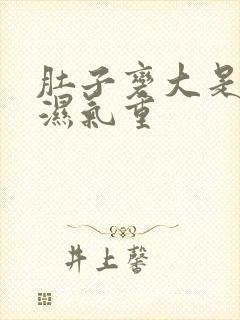 肚子变大是
濕氣重
井上馨